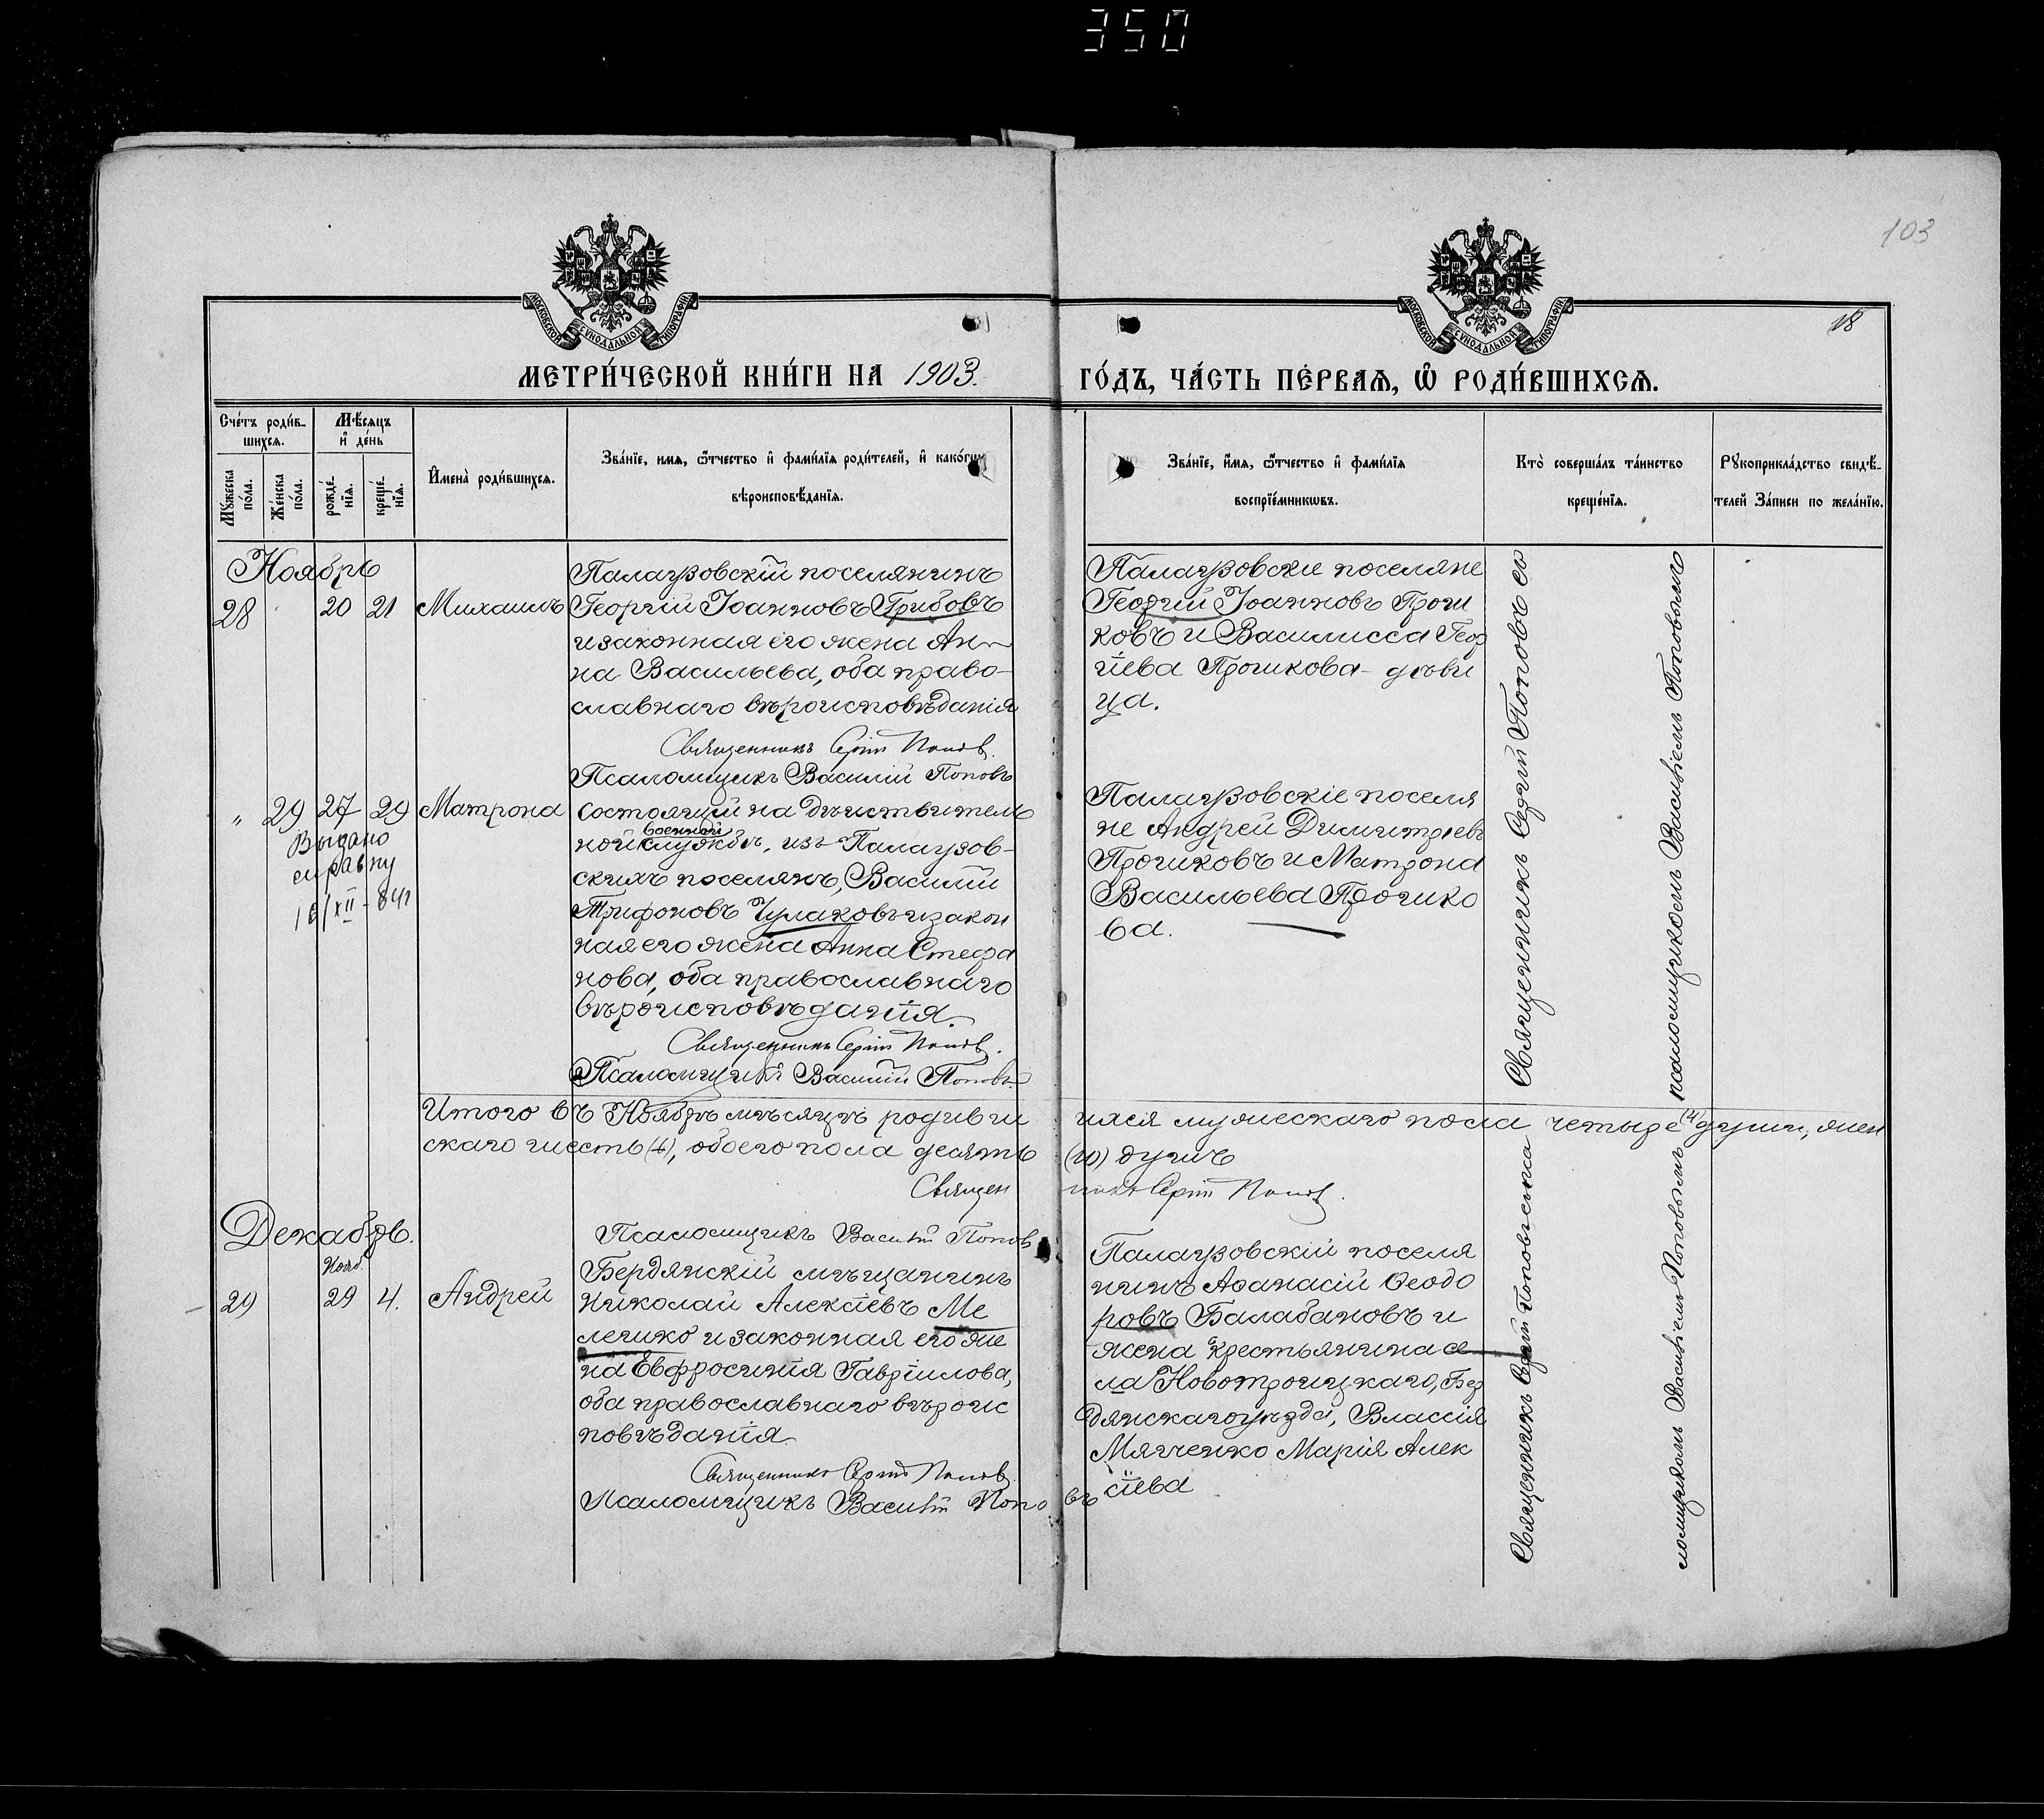 350
103
18
МОСКОВСКОЙ СѴНОДАЛЬНОЙ ТИПОГРАФІИ
МОСКОВСКОЙ СѴНОДАЛЬНОЙ ТИПОГРАФІИ
МЕТРИ́ЧЕСКОЙ КНИ́ГИ НА 1903.
ГО́ДЪ, ЧА́СТЬ ПЕ́РВАѦ, Ѽ РОДИ́ВШИХСѦ.
Сче́тъ роди́в-
шихсѧ.
Мѣ́сяцъ
и де́нь
Мꙋжеска по́ла.
Же́нска по́ла.
рожде́-
нїѧ.
креще́-
нїѧ.
Имена̀ роди́вшихсѧ.
Зва́нїе, имѧ, ѿтчество и фами́лїѧ роди́телей, и како́гѡ
вѣроисповѣ́данїѧ.
Зва́нїе, и́мѧ, ѿтчество и фами́лїѧ
воспрїе́мникѡвъ.
Кто̀ соверша́лъ та́инство
креще́нїѧ.
Рꙋкоприкла́дство свидѣ́-
телей За́писи по жела́нїю.
Ноябрь
28 20 21 Михаилъ
Палаузовскій поселянинъ
Георгій Іоанновъ Грибовъ
и законная его жена Ан-
на Васильева, оба право-
славнаго вѣроисповѣданія
Священникъ Сергій Поповъ.
Псаломщикъ Василій Поповъ
Палаузовскіе поселяне
Георгій Іоанновъ Прош
ковъ и Василисса Геор
гіева Прошкова - дѣви
ца.
Священникъ Сергій Поповъ съ
псаломщикомъ Василіемъ Поповымъ
" 29 27 29 Матрона
Выдано
справку
XII
состоящій на дѣйствитель
ной военной службѣ, изъ Палаузов-
скихъ поселянъ, Василій
Трифоновъ Чулаковъ и закон
ная его жена Анна Стефа
нова, оба православнаго
вѣроисповѣданія.
Священникъ Сергій Поповъ.
Псаломщикъ Василій Поповъ
Палаузовскіе поселя
не Андрей Димитріевъ
Прошковъ и Матрона
Васильева Прошко
ва.
Итого въ Ноябрѣ мѣсяцѣ родивши
хся мужескаго пола четыре (4) души, жен
скаго шесть (6), обоего пола десять
(10) душъ
Священ
никъ Сергій Поповъ.
Псаломщикъ Василій Поповъ
Декабрь.
Нояб.
29 29 4. Андрей
Бердянскій мѣщанинъ
Николай Алексіевъ Ме
лешко и законная его же
на Евфросинія Гавріилова,
оба православнаго вѣроис
повѣданія.
Священникъ Сергій Поповъ
Псаломщикъ Василій Поповъ
Палаузовскій поселя
нинъ Аѳанасій Ѳеодо
ровъ Балабановъ и
жена крестьянина се
ла Новотроицкаго, Бер
дянскаго уѣзда, Влассія
Мягченко Марія Алек
сіева
Священникъ Сергій Поповъ съ пса
ломщикомъ Василіемъ Поповымъ